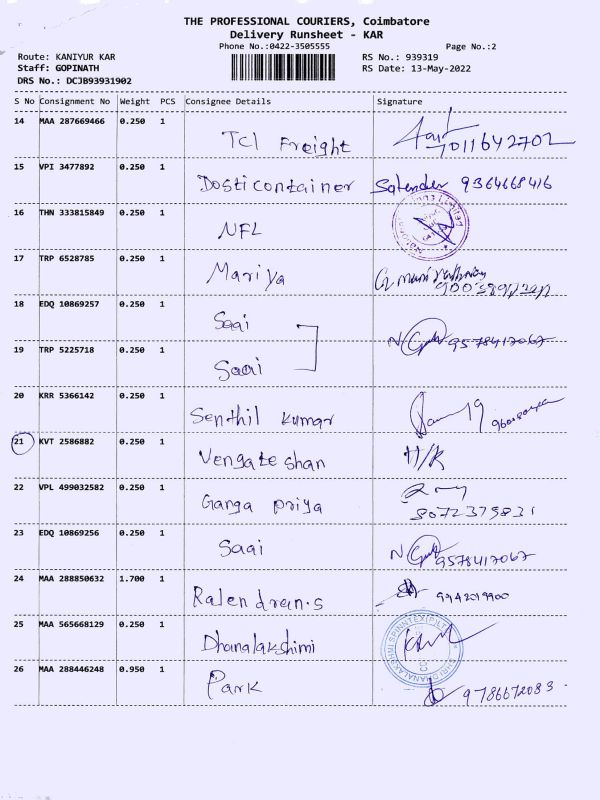 THE PROFESSIONAL COURIERS, Coimbatore
Delivery Runsheet - KAR
Phone No.:0422-3505555 Page No.:2
Route: KANIYUR KAR RS No.: 939319
Staff: GOPINATH RS Date: 13-May-2022
DRS No.: DCJB93931902
S No Consignment No Weight PCS Consignee Details Signature
14 MAA 287669466 0.250 1
TCI Freight 7011642702
15 VPI 3477892 0.250 1
Dosti container Satender 9364668416
16 THN 333815849 0.250 1
NFL
17 TRP 6528785 0.250 1
Mariya
18 EDQ 10869257 0.250 1
Saai
9578417067
19 TRP 5225718 0.250 1
Saai
20 KRR 5366142 0.250 1
Senthil kumar
21 KVT 2586882 0.250 1
Vengateshan H/K
22 VPL 499032582 0.250 1
Ganga priya 8072379831
23 EDQ 10869256 0.250 1
Saai 9578417067
24 MAA 288850632 1.700 1
Rajendran.s 9942019900
25 MAA 565668129 0.250 1
Dhanalakshimi
26 MAA 288446248 0.950 1
Park 9786672083